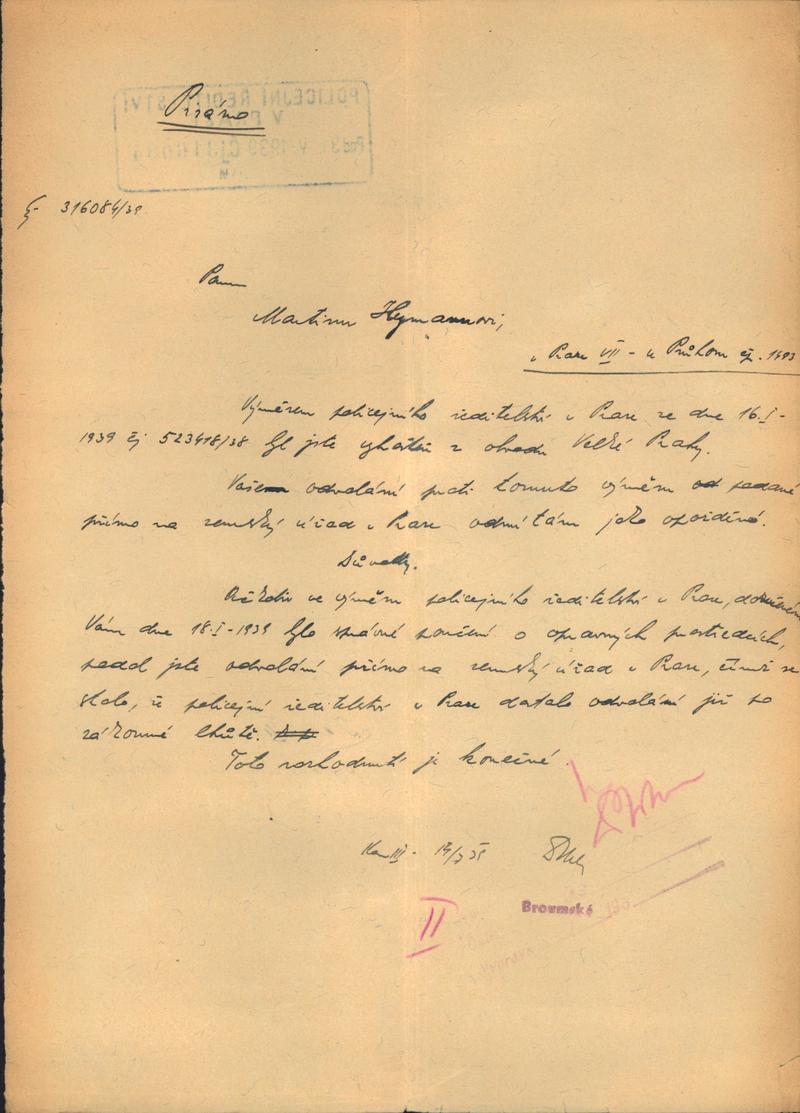 Psáno
čj 316084/39
Panu
Martinu Heymannovi,
v Praze VII - u Průhonu čp. 1493
Výměrem policejního ředitelství v Praze ze dne 16.I-
1939 čj 523418/38 byl jste vyhoštěn z obvodu Velké Prahy.
Vaše odvolání proti tomuto výměru podané
přímo na zemský úřad v Praze odmítám jako opožděné.
Důvody.
Ačkoliv ve výměru policejního ředitelství v Praze, doručeném
Vám dne 18.I-1939 bylo správné poučení o opravných prostředcích,
podal jste odvolání přímo na zemský úřad v Praze, čímž se
stalo, že policejní ředitelství v Praze dostalo odvolání již po
zákonné lhůtě.
Toto rozhodnutí je konečné.
II
Broumské